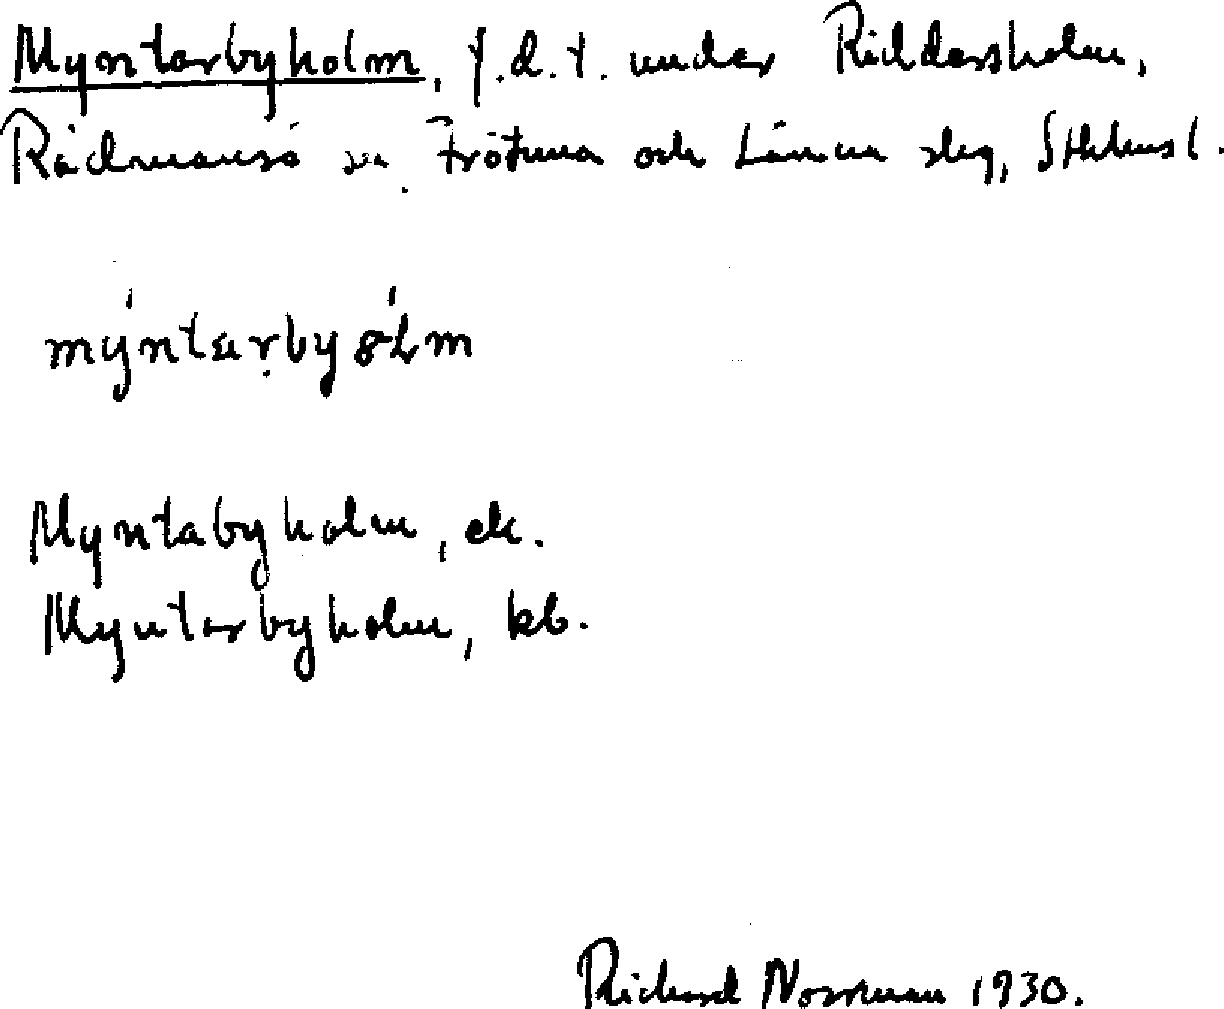 Myntarbyholm, f.d.t. under Riddersholm,
Rådmansö sn. Frötuna och Länna slg, Sthlms l.
mýntarbyólm
Myntabyholm, ek.
Myntarbyholm, kb.
Richard Norrman 1930.